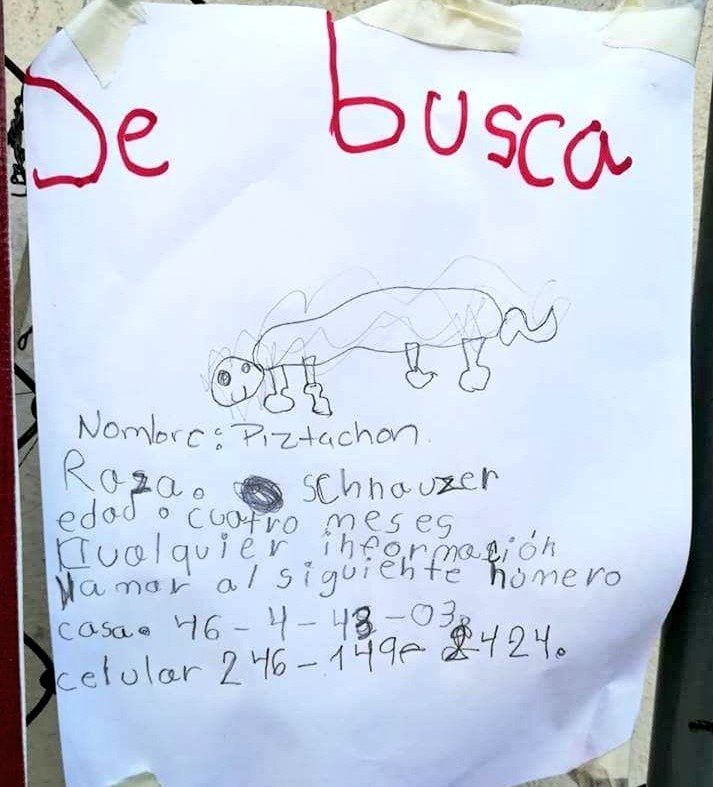 Se busca
Nombre: Piztachon.
Raza. schnauzer
edad. cuatro meses
Cualquier información
llamar al siguiente número
casa. 46-4-48-03
celular 246-149-2424.